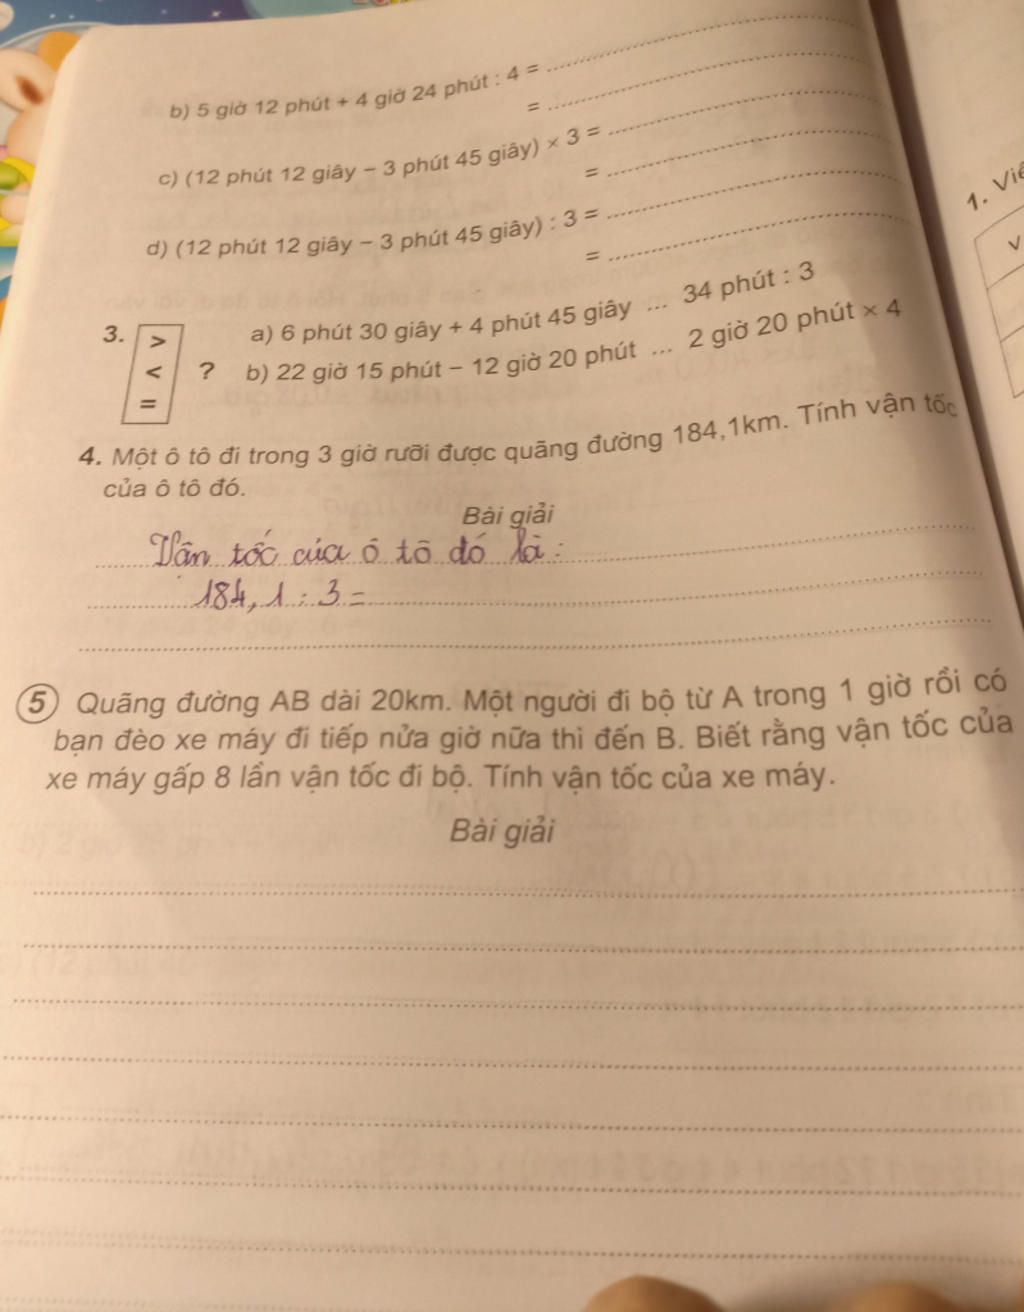 b) 5 giờ 12 phút + 4 giờ 24 phút : 4 =
=
c) (12 phút 12 giây − 3 phút 45 giây) × 3 =
=
d) (12 phút 12 giây − 3 phút 45 giây) : 3 =
=
3. > < = ? a) 6 phút 30 giây + 4 phút 45 giây ... 34 phút : 3
b) 22 giờ 15 phút − 12 giờ 20 phút ... 2 giờ 20 phút × 4
4. Một ô tô đi trong 3 giờ rưỡi được quãng đường 184,1km. Tính vận tốc
của ô tô đó.
Bài giải
Vận tốc của ô tô đó là :
184,1 : 3 =
5 Quãng đường AB dài 20km. Một người đi bộ từ A trong 1 giờ rồi có
bạn đèo xe máy đi tiếp nửa giờ nữa thì đến B. Biết rằng vận tốc của
xe máy gấp 8 lần vận tốc đi bộ. Tính vận tốc của xe máy.
Bài giải
1. Vi